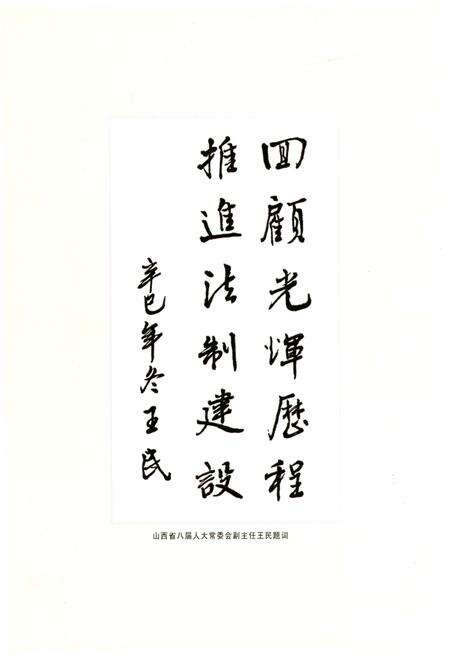 回顧光輝歷程
推進法制建設
辛巳年冬王民
山西省八届人大常委会副主任王民题词